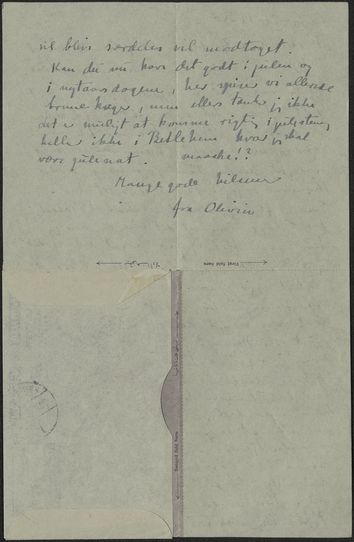 vil blive særdeles vel modtaget.
Kan du nu have det godt i julen og
i nytaarsdagene, her spiser vi allerede
brune kager, men ellers tænk jeg ikke
det er muligt at komme rigtig i julestemn,
heller ikke i Betlehem hvor jeg skal
være julenat. maaske!?
Mange gode hilsner
fra Olivia
First fold here
Second fold here